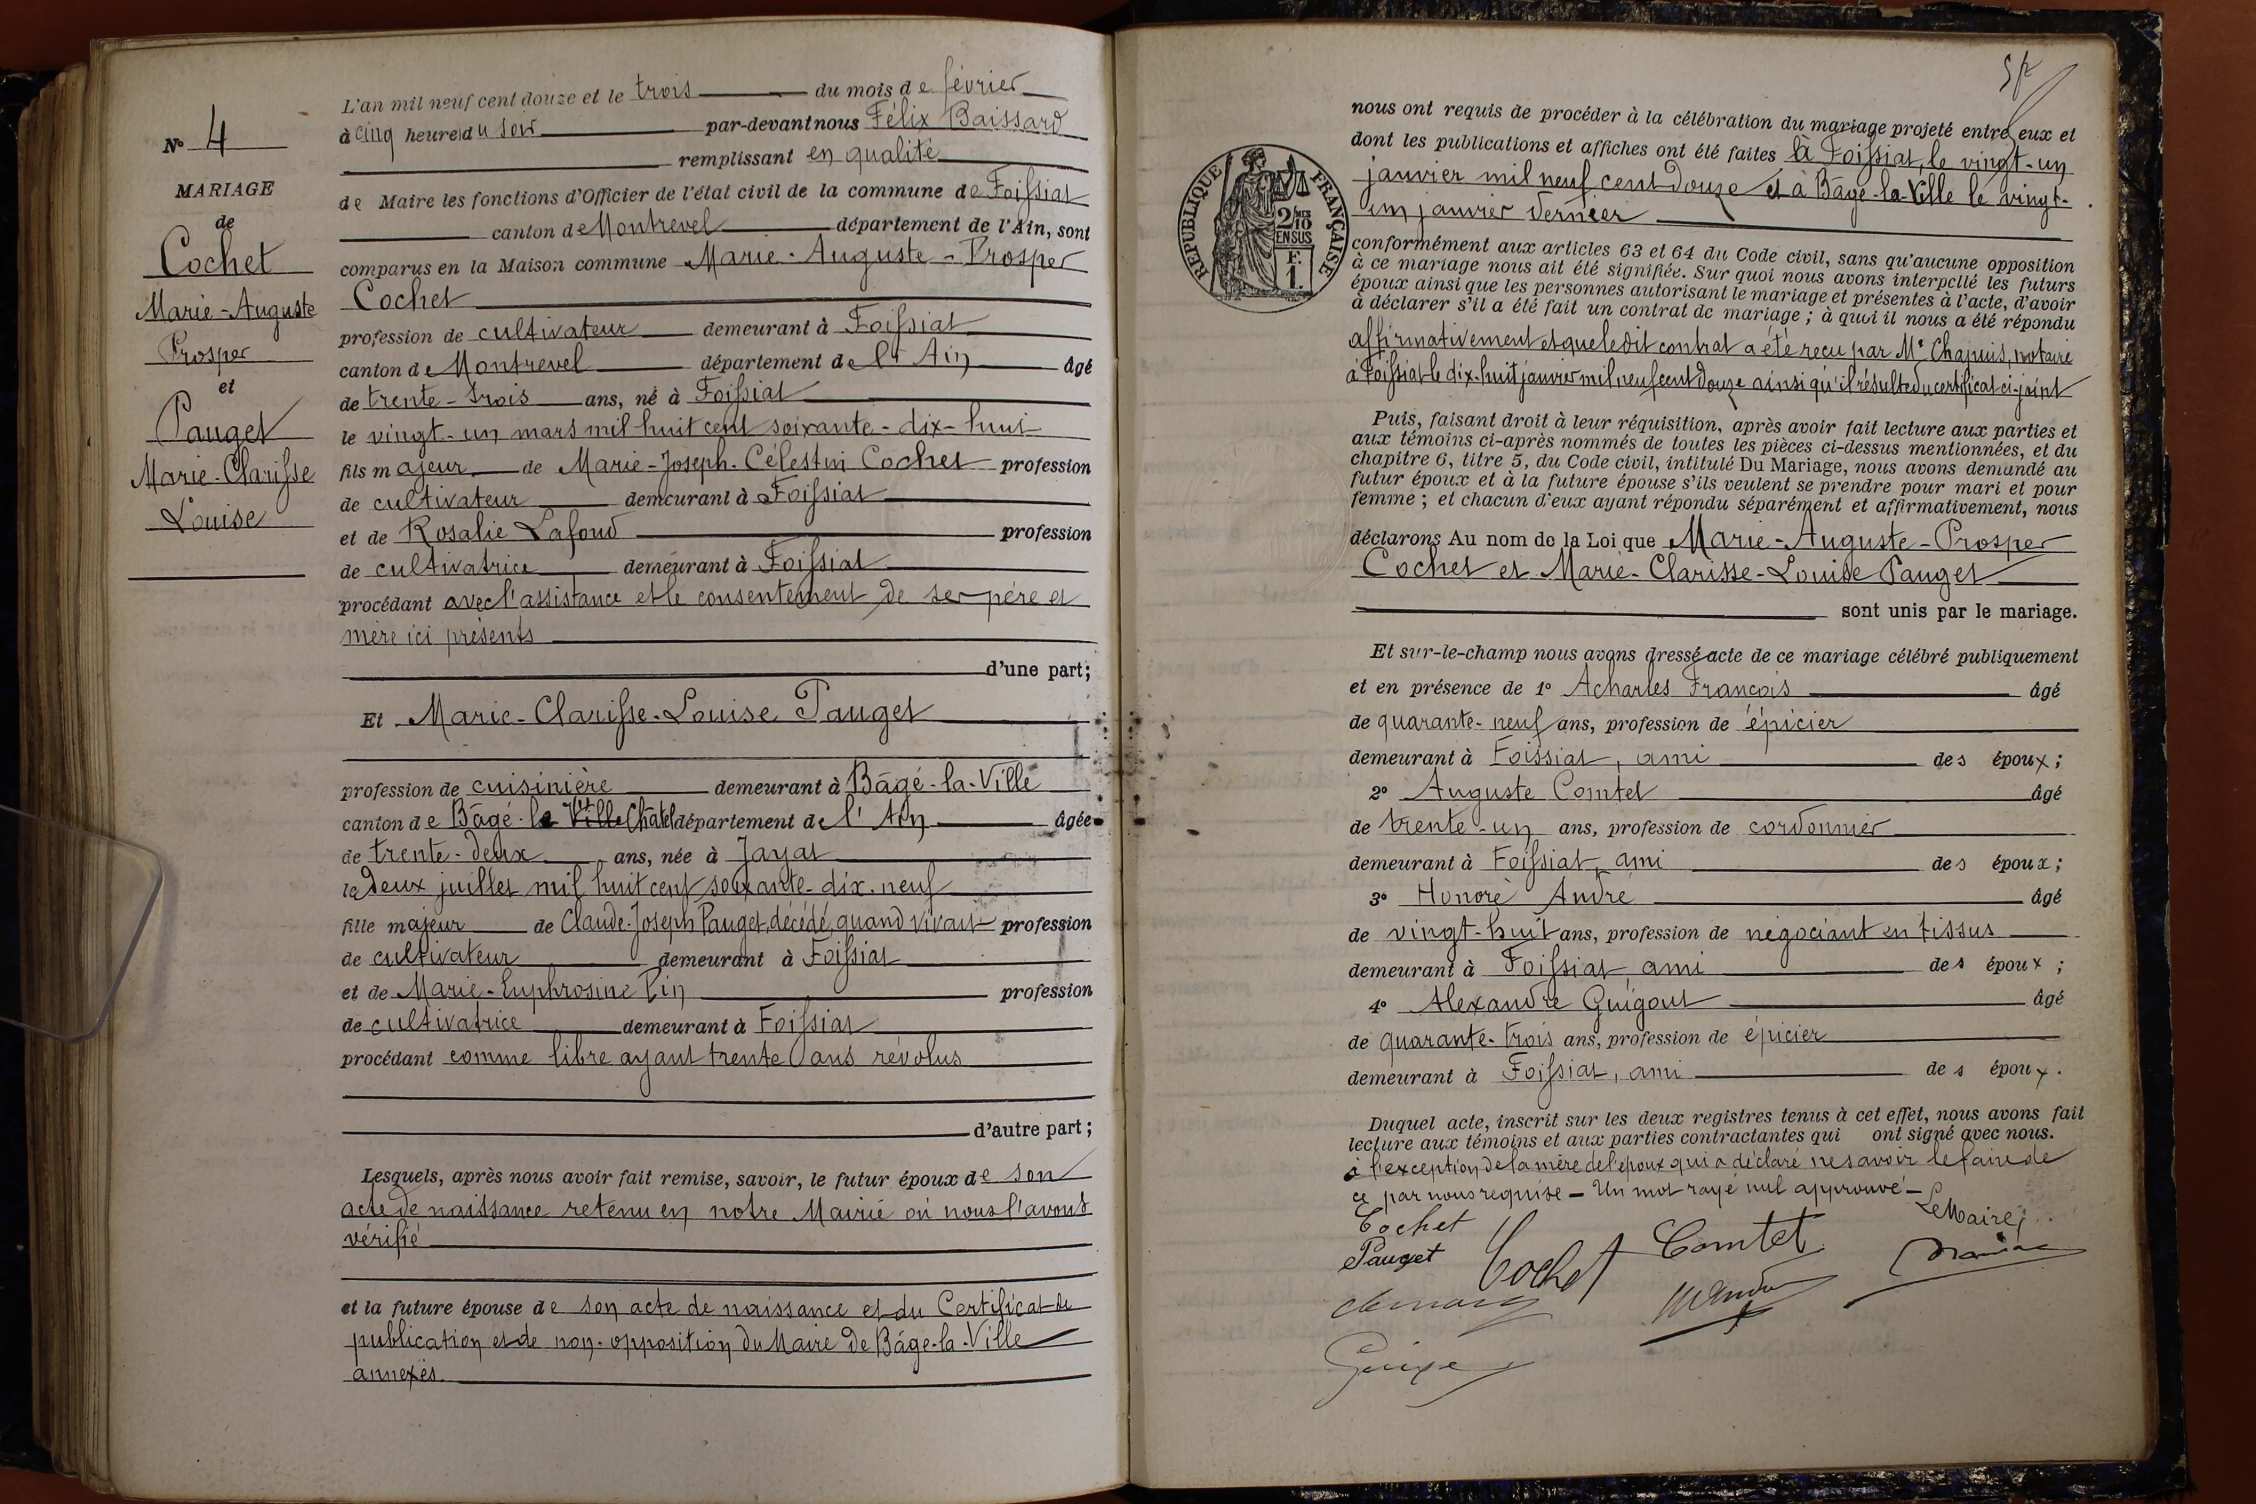 N° 4
MARIAGE
de
Cochet
Marie-Auguste
Prosper
et
Pauget
Marie-Clarisse
Louise
L'an mil neuf cent douze et le trois du mois de février
à cinq heures du soir par-devant nous Félix Baissard
remplissant en qualité
de Maire les fonctions d'Officier de l'état civil de la commune de Foissiat
canton de Montrevel département de l'Ain, sont
comparus en la Maison commune Marie-Auguste-Prosper
Cochet
profession de cultivateur demeurant à Foissiat
canton de Montrevel département de l'Ain âgé
de trente-trois ans, né à Foissiat
le vingt-un mars mil huit cent soixante-dix-huit
fils majeur de Marie-Joseph-Célestin Cochet profession
de cultivateur demeurant à Foissiat
et de Rosalie Lafond profession
de cultivatrice demeurant à Foissiat
procédant avec l'assistance et le consentement de ses père et
mère ici présents
d'une part;
Et Marie-Clarisse-Louise Pauget
profession de cuisinière demeurant à Bâgé-la-Ville
canton de Bâgé-le Ville Châtel département de l'Ain âgée
de trente-deux ans, née à Jayat
le deux juillet mil huit cent soixante-dix-neuf
fille majeur de Claude-Joseph Pauget, décédé, quand vivait profession
de cultivateur demeurant à Foissiat
et de Marie-Euphrosine Pin profession
de cultivatrice demeurant à Foissiat
procédant comme libre ayant trente ans révolus
d'autre part;
Lesquels, après nous avoir fait remise, savoir, le futur époux de son
acte de naissance retenu en notre Mairie où nous l'avons
vérifié
et la future épouse de son acte de naissance et du Certificat de
publication et de non-opposition du Maire de Bâgé-la-Ville
annexés
nous ont requis de procéder à la célébration du mariage projeté entre eux et
dont les publications et affiches ont été faites à Foissiat, le vingt-un
janvier mil neuf cent douze et à Bâgé-la-Ville le vingt-
un janvier dernier
RÉPUBLIQUE FRANÇAISE
2/10 EN SUS
F. 1.
conformément aux articles 63 et 64 du Code civil, sans qu'aucune opposition
à ce mariage nous ait été signifiée. Sur quoi nous avons interpellé les futurs
époux ainsi que les personnes autorisant le mariage et présentes à l'acte, d'avoir
à déclarer s'il a été fait un contrat de mariage; à quoi il nous a été répondu
affirmativement et que le dit contrat a été reçu par Me Chapuis, notaire
à Foissiat le dix-huit janvier mil neuf cent douze ainsi qu'il résulte du certificat ci-joint
Puis, faisant droit à leur réquisition, après avoir fait lecture aux parties et
aux témoins ci-après nommés de toutes les pièces ci-dessus mentionnées, et du
chapitre 6, titre 5, du Code civil, intitulé Du Mariage, nous avons demandé au
futur époux et à la future épouse s'ils veulent se prendre pour mari et pour
femme; et chacun d'eux ayant répondu séparément et affirmativement, nous
déclarons Au nom de la Loi que Marie-Auguste-Prosper
Cochet et Marie-Clarisse-Louise Pauget
sont unis par le mariage.
Et sur-le-champ nous avons dressé acte de ce mariage célébré publiquement
et en présence de 1° Acharles François âgé
de quarante-neuf ans, profession de épicier
demeurant à Foissiat, ami des époux;
2° Auguste Comtet âgé
de trente-un ans, profession de cordonnier
demeurant à Foissiat, ami des époux;
3° Honoré André âgé
de vingt-huit ans, profession de négociant en tissus
demeurant à Foissiat, ami des époux;
4° Alexandre Guigout âgé
de quarante-trois ans, profession de épicier
demeurant à Foissiat, ami des époux.
Duquel acte, inscrit sur les deux registres tenus à cet effet, nous avons fait
lecture aux témoins et aux parties contractantes qui ont signé avec nous.
à l'exception de la mère de l'époux qui a déclaré ne savoir le faire de
ce par nous requise - Un mot rayé nul approuvé -
Le Maire,
Cochet
Pauget
Cochet
Comtet